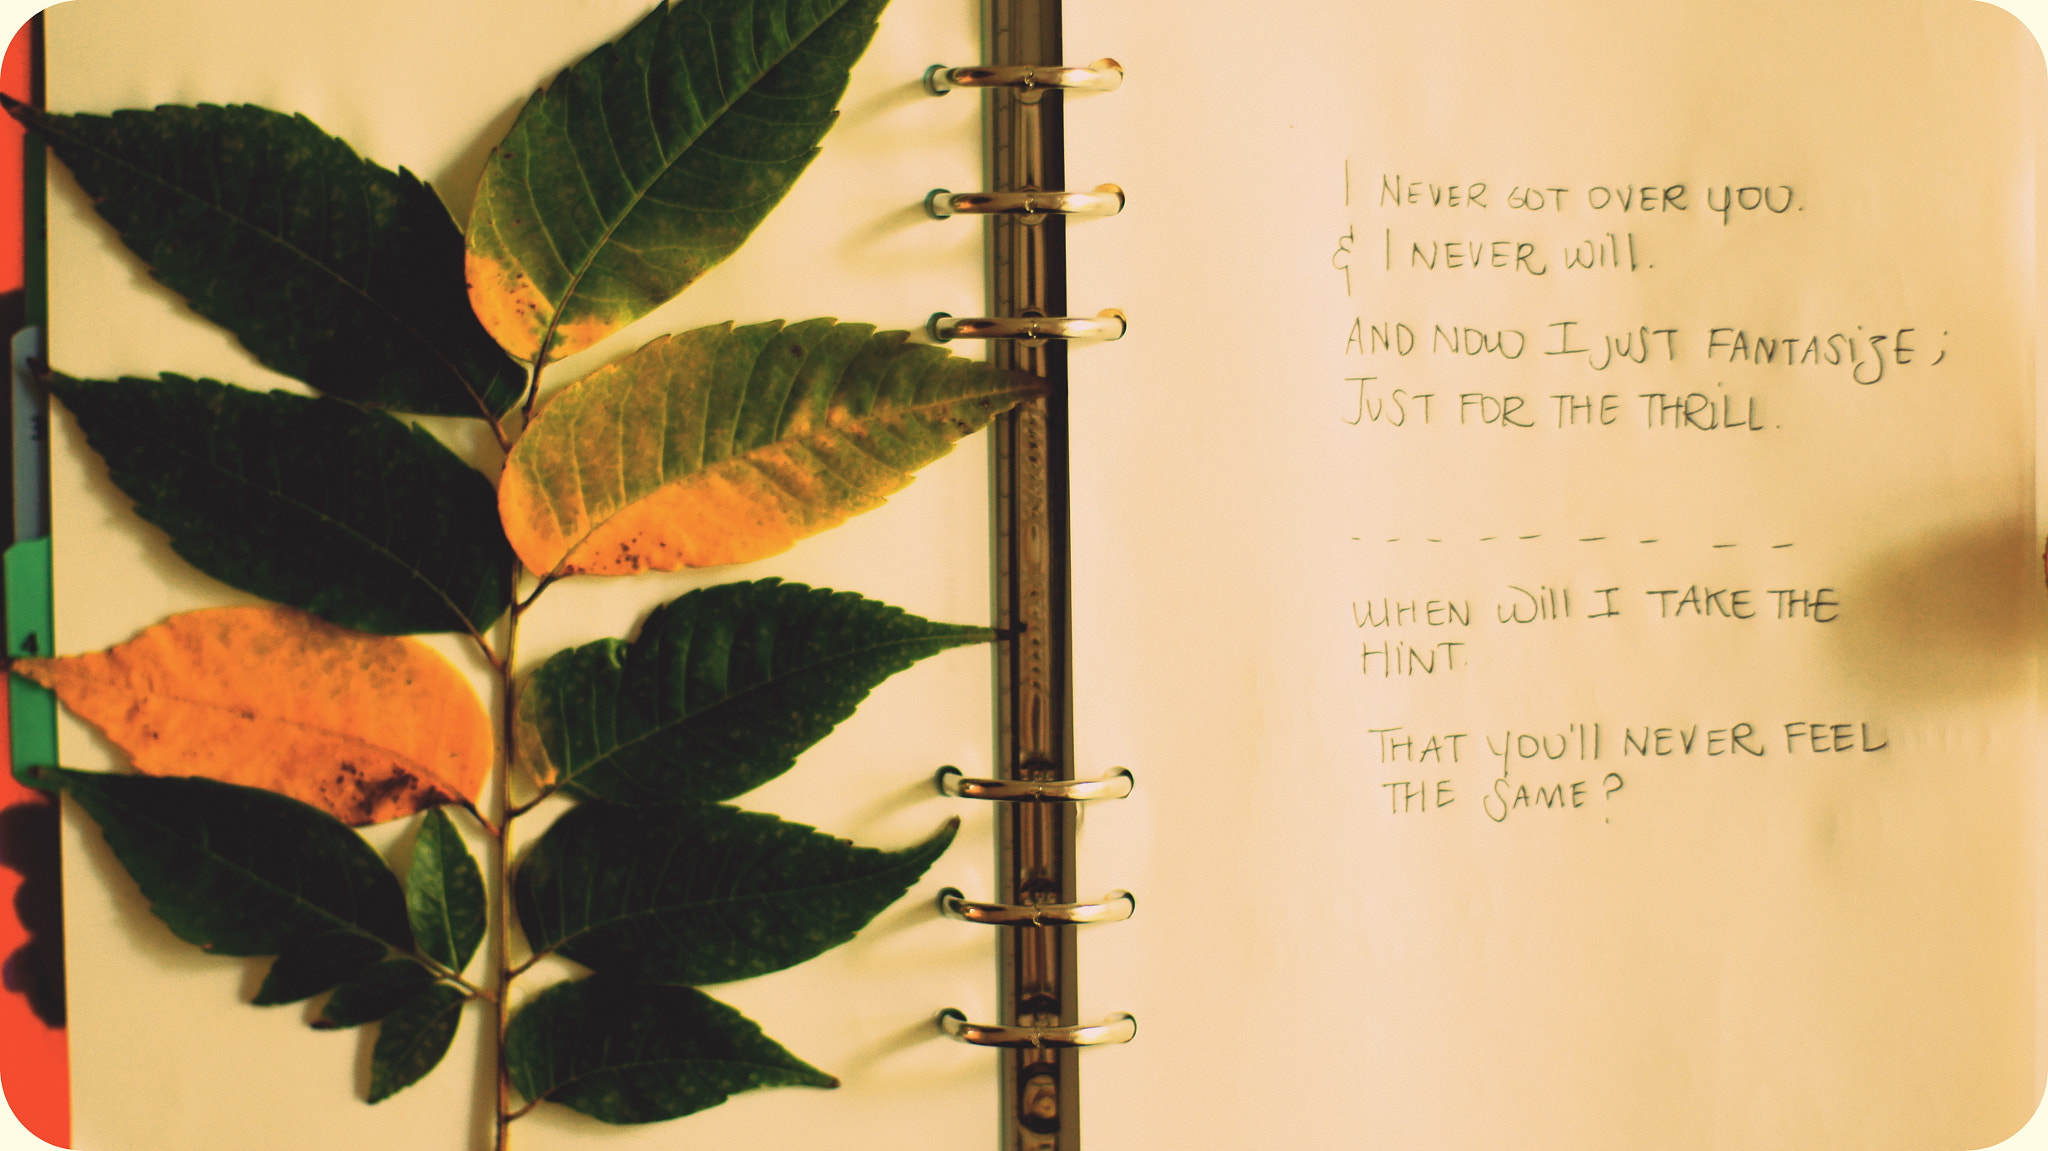 4
I NEVER GOT OVER YOU.
& I NEVER Will.
AND NOW I JUST FANTASiZE;
JUST FOR THE THRiLL.
WHEN Will I TAKE THE
HiNT.
THAT YOU'll NEVER FEEL
THE SAME?